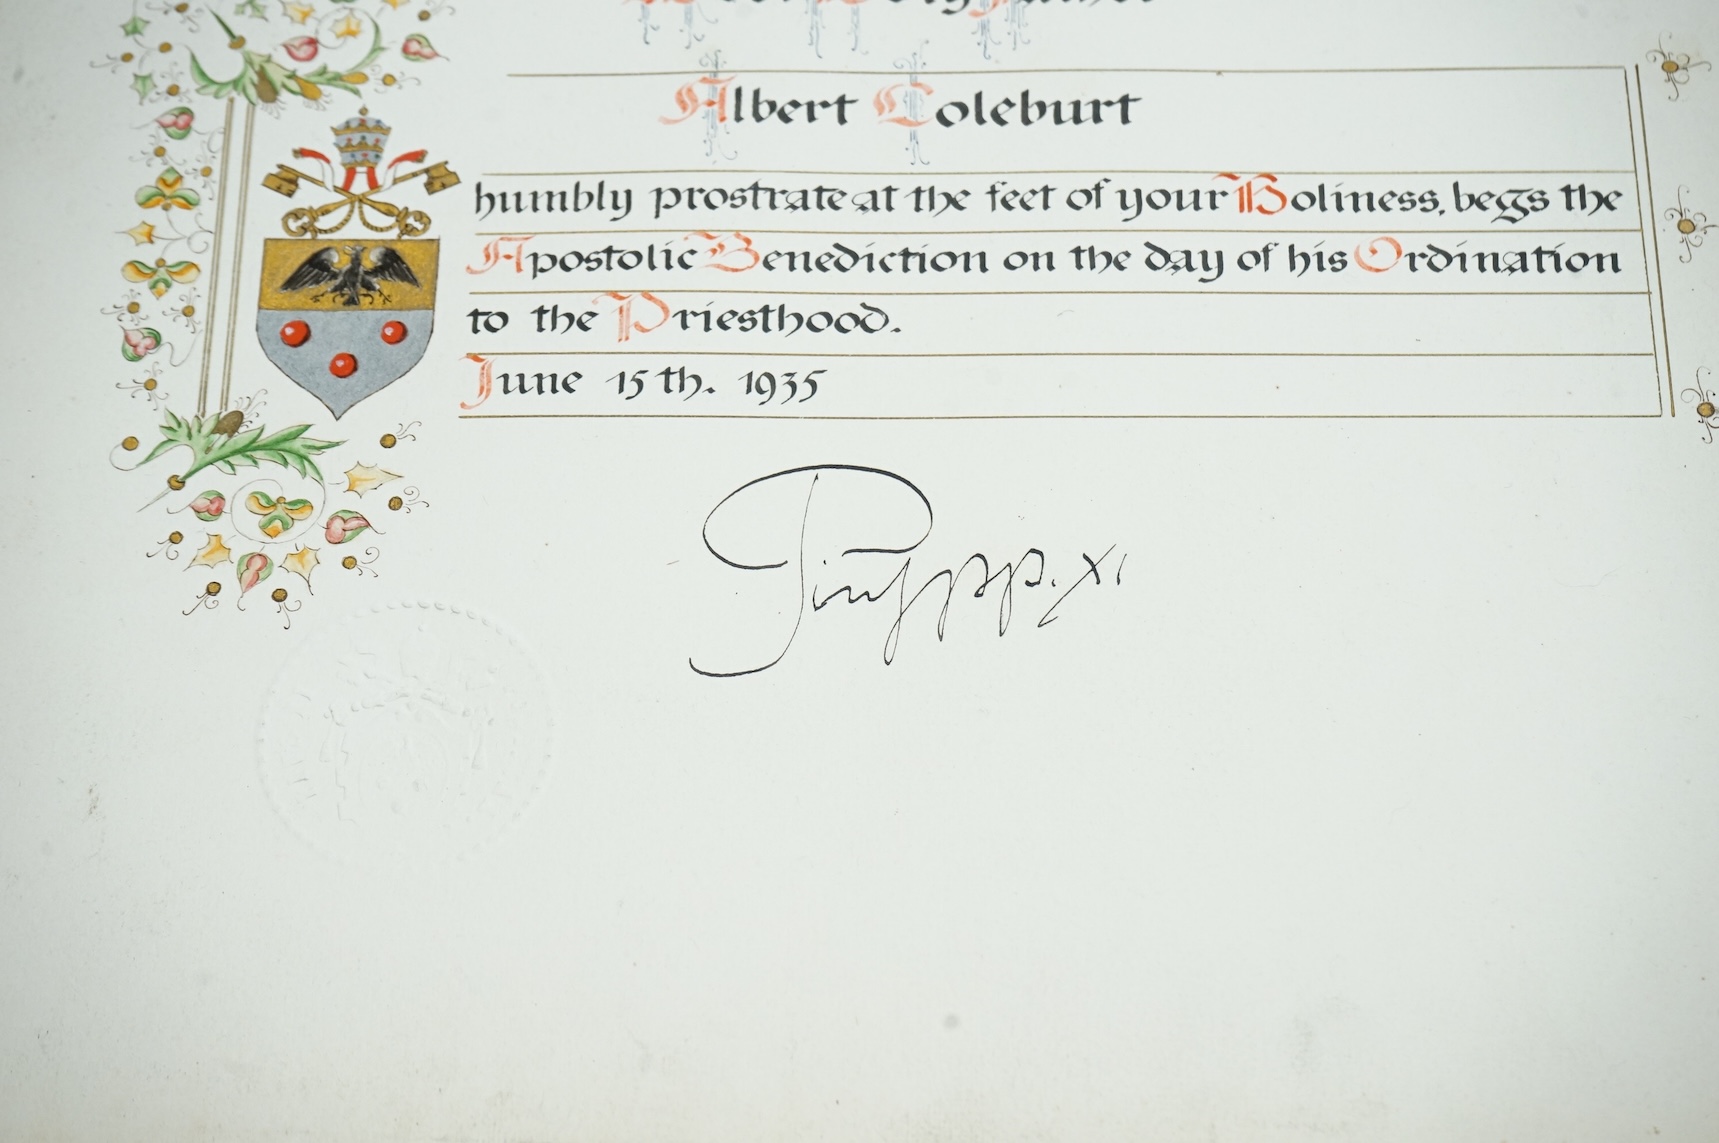 Albert Coleburt
humbly prostrate at the feet of your Holiness, begs the
Apostolic Benediction on the day of his Ordination
to the Priesthood.
June 15th. 1935
Pius pp. XI